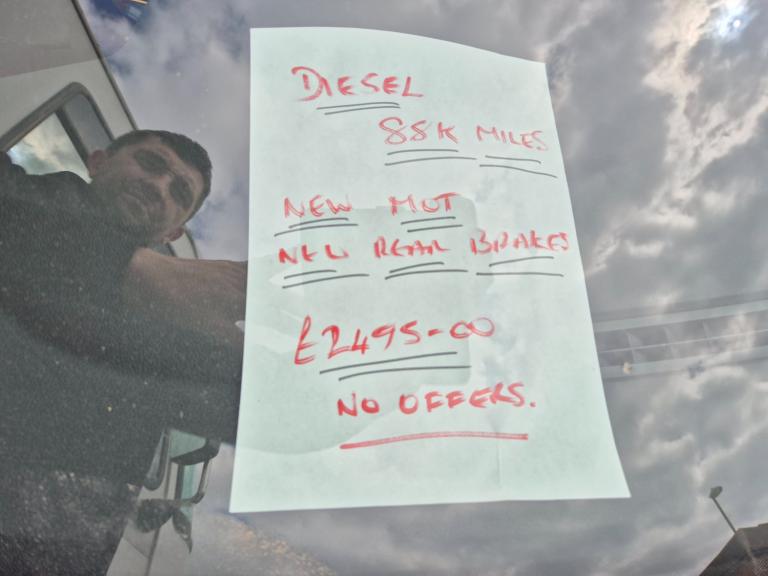 DIESEL
88K MILES
NEW MOT
NEW REAR BRAKES
£2495-00
NO OFFERS.